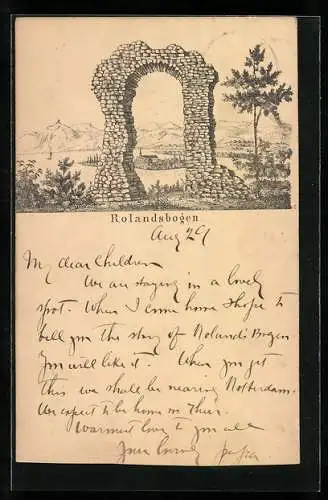 Rolandsbogen
Aug 29
My dear Children
We are staying in a lovely
spot. When I come home I hope to
tell you the story of Roland's Bogen
You will like it. When you get
this we shall be nearing Rotterdam.
We expect to be home on Thurs.
Warmest love to you all
Your loving